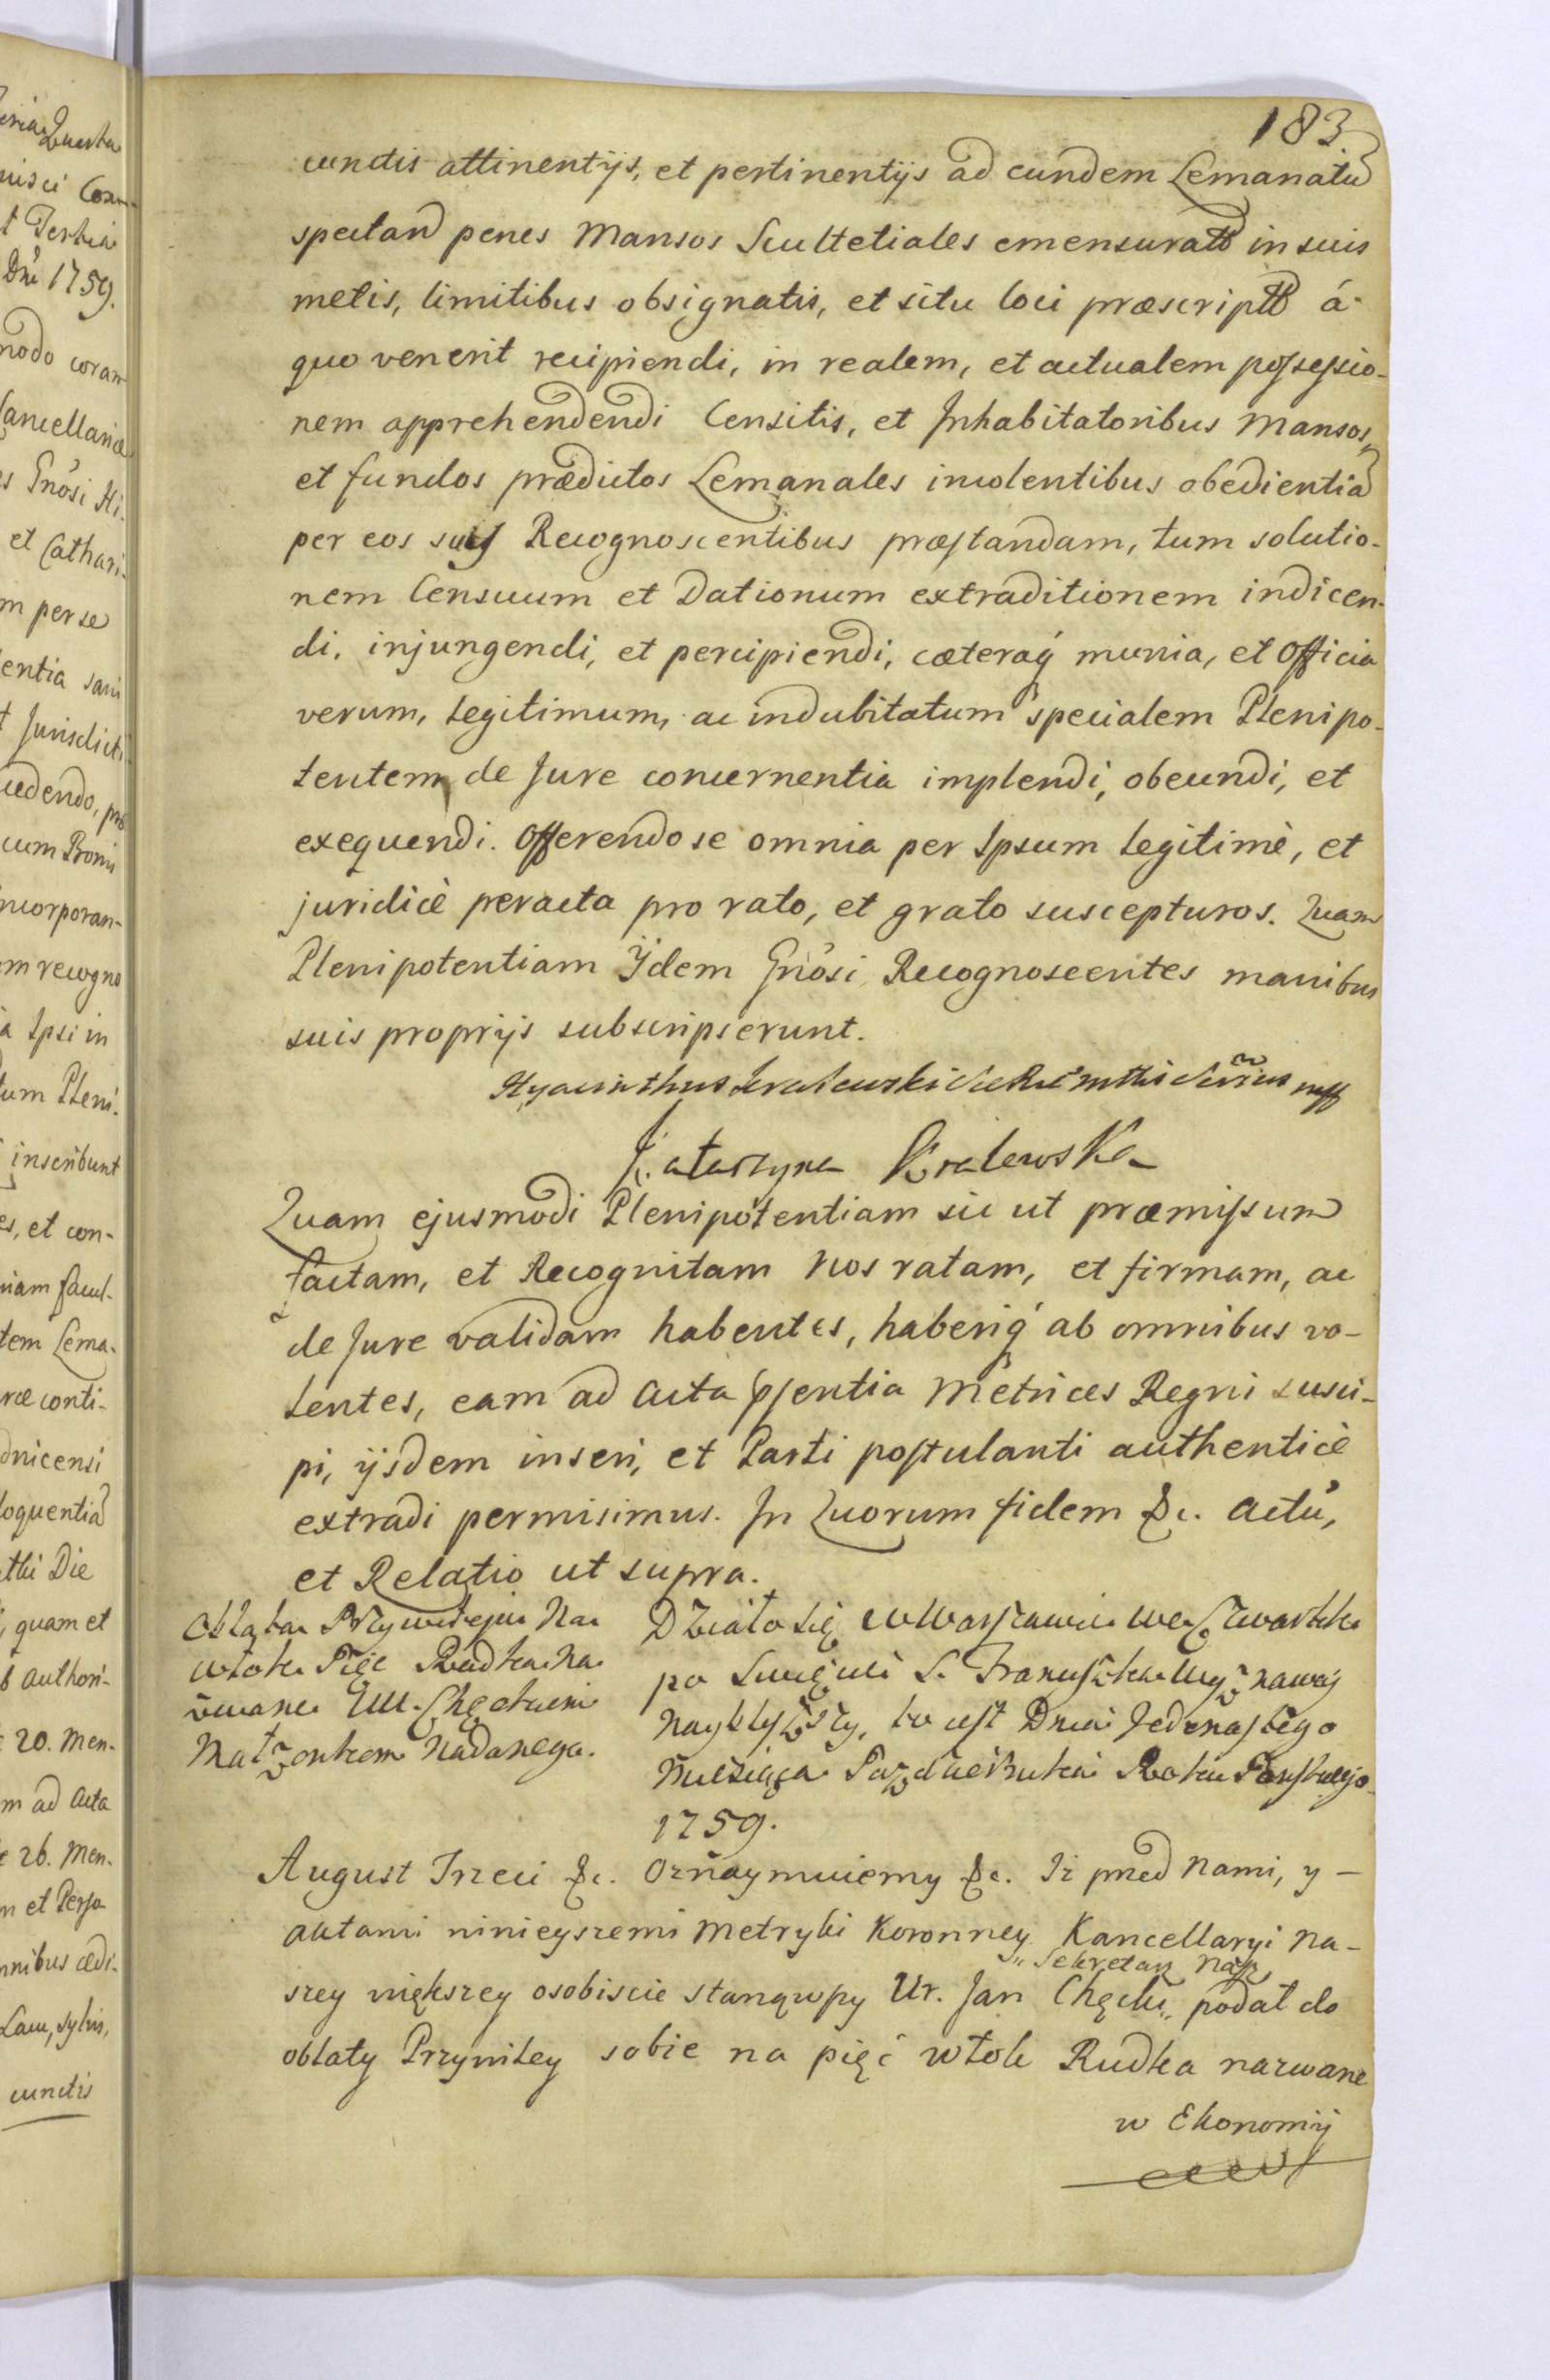 183
cunctis attinentijs, et pertinentijs ad eundem Lemanatū
spectand penes Mansos Scultetiales emensuratt in suis
metis, limitibus obsignatis, et situ loci præscriptt á
quo venerit recipiendi, in realem, et actualem possessio-
nem apprehendendi Censitis, et Inhabitatoribus Mansos,
et fundos prædictos Lemanales incolentibus obedientiā
per eos suis Recognoscentibus præstandam, tum solutio-
nem Censuum et Dationum extraditionem indicen-
di, injungendi, et percipiendi, cæteraq́ munia, et Officia
verum, legitimum, ac indubitatum specialem Plenipo-
tentem de Jure concernentia implendi, obeundi, et
exequendi. Offerendo se omnia per Ipsum legitimè, et
juridicè peracta pro rato, et grato suscepturos. Quam
Plenipotentiam Ijdem Gnōsi Recognoscentes manibus
suis proprijs subscripserunt.
Hyacinthus Kralewski
Katarzyna Kralewska
Quam ejusmodi Plenipotentiam sic ut præmissum
factam, et Recognitam Nos ratam, et firmam, ac
de Jure validam habentes, haberiq́ ab omnibus vo-
lentes, eam ad Acta pſentia Metrices Regni susci-
pi, ijsdem inseri, et Parti postulanti authenticè
extradi permisimus. In Quorum fidem &c. Actū,
et Relatio ut supra.
Oblata Przywileju Na
włok Pięć Rudka na
zwane UU. Chęckim
Małżonkom Nadanego.
Działo się w Warszawie we Czwartek
po Swięcie S. Franciszka Wyznawcy
nayblyższy, to iest Dnia Jedenastego
Miesiąca Pazdziernika Roku Pańskiego
1759.
August Trzeci &c. Oznaymuiemy &c. Iz przed Nami, y –
aktami ninieyszemi Metryki Koronney Kancellaryi Na-
„ Sekretarz Nasz
szey większey osobiscie stanąwszy Ur. Jan Chęcki „ podał do
oblaty Przywiley sobie na pięć włok Rudka nazwane
w Ekonomij
eria Quarta
misci Con-
t Tertia
Dni 1759.
modo coram
Cancellariæ
s Gnōsi Hi-
et Cathari-
m per se
entia sani
t Jurisdicti
cedendo, pro
cum Bonis
ncorporan-
em recogno
a Ipsi in
tum Pleni-
inscribunt
es, et con-
niam facul-
tem Lema-
ræ conti-
dnicensi
loquentiā
tti Die
, quam et
b authori-
e 20. Men-
m ad Acta
e 26. Men-
n et Perso
mnibus ædi-
Lacu, sylvis,
cunctis